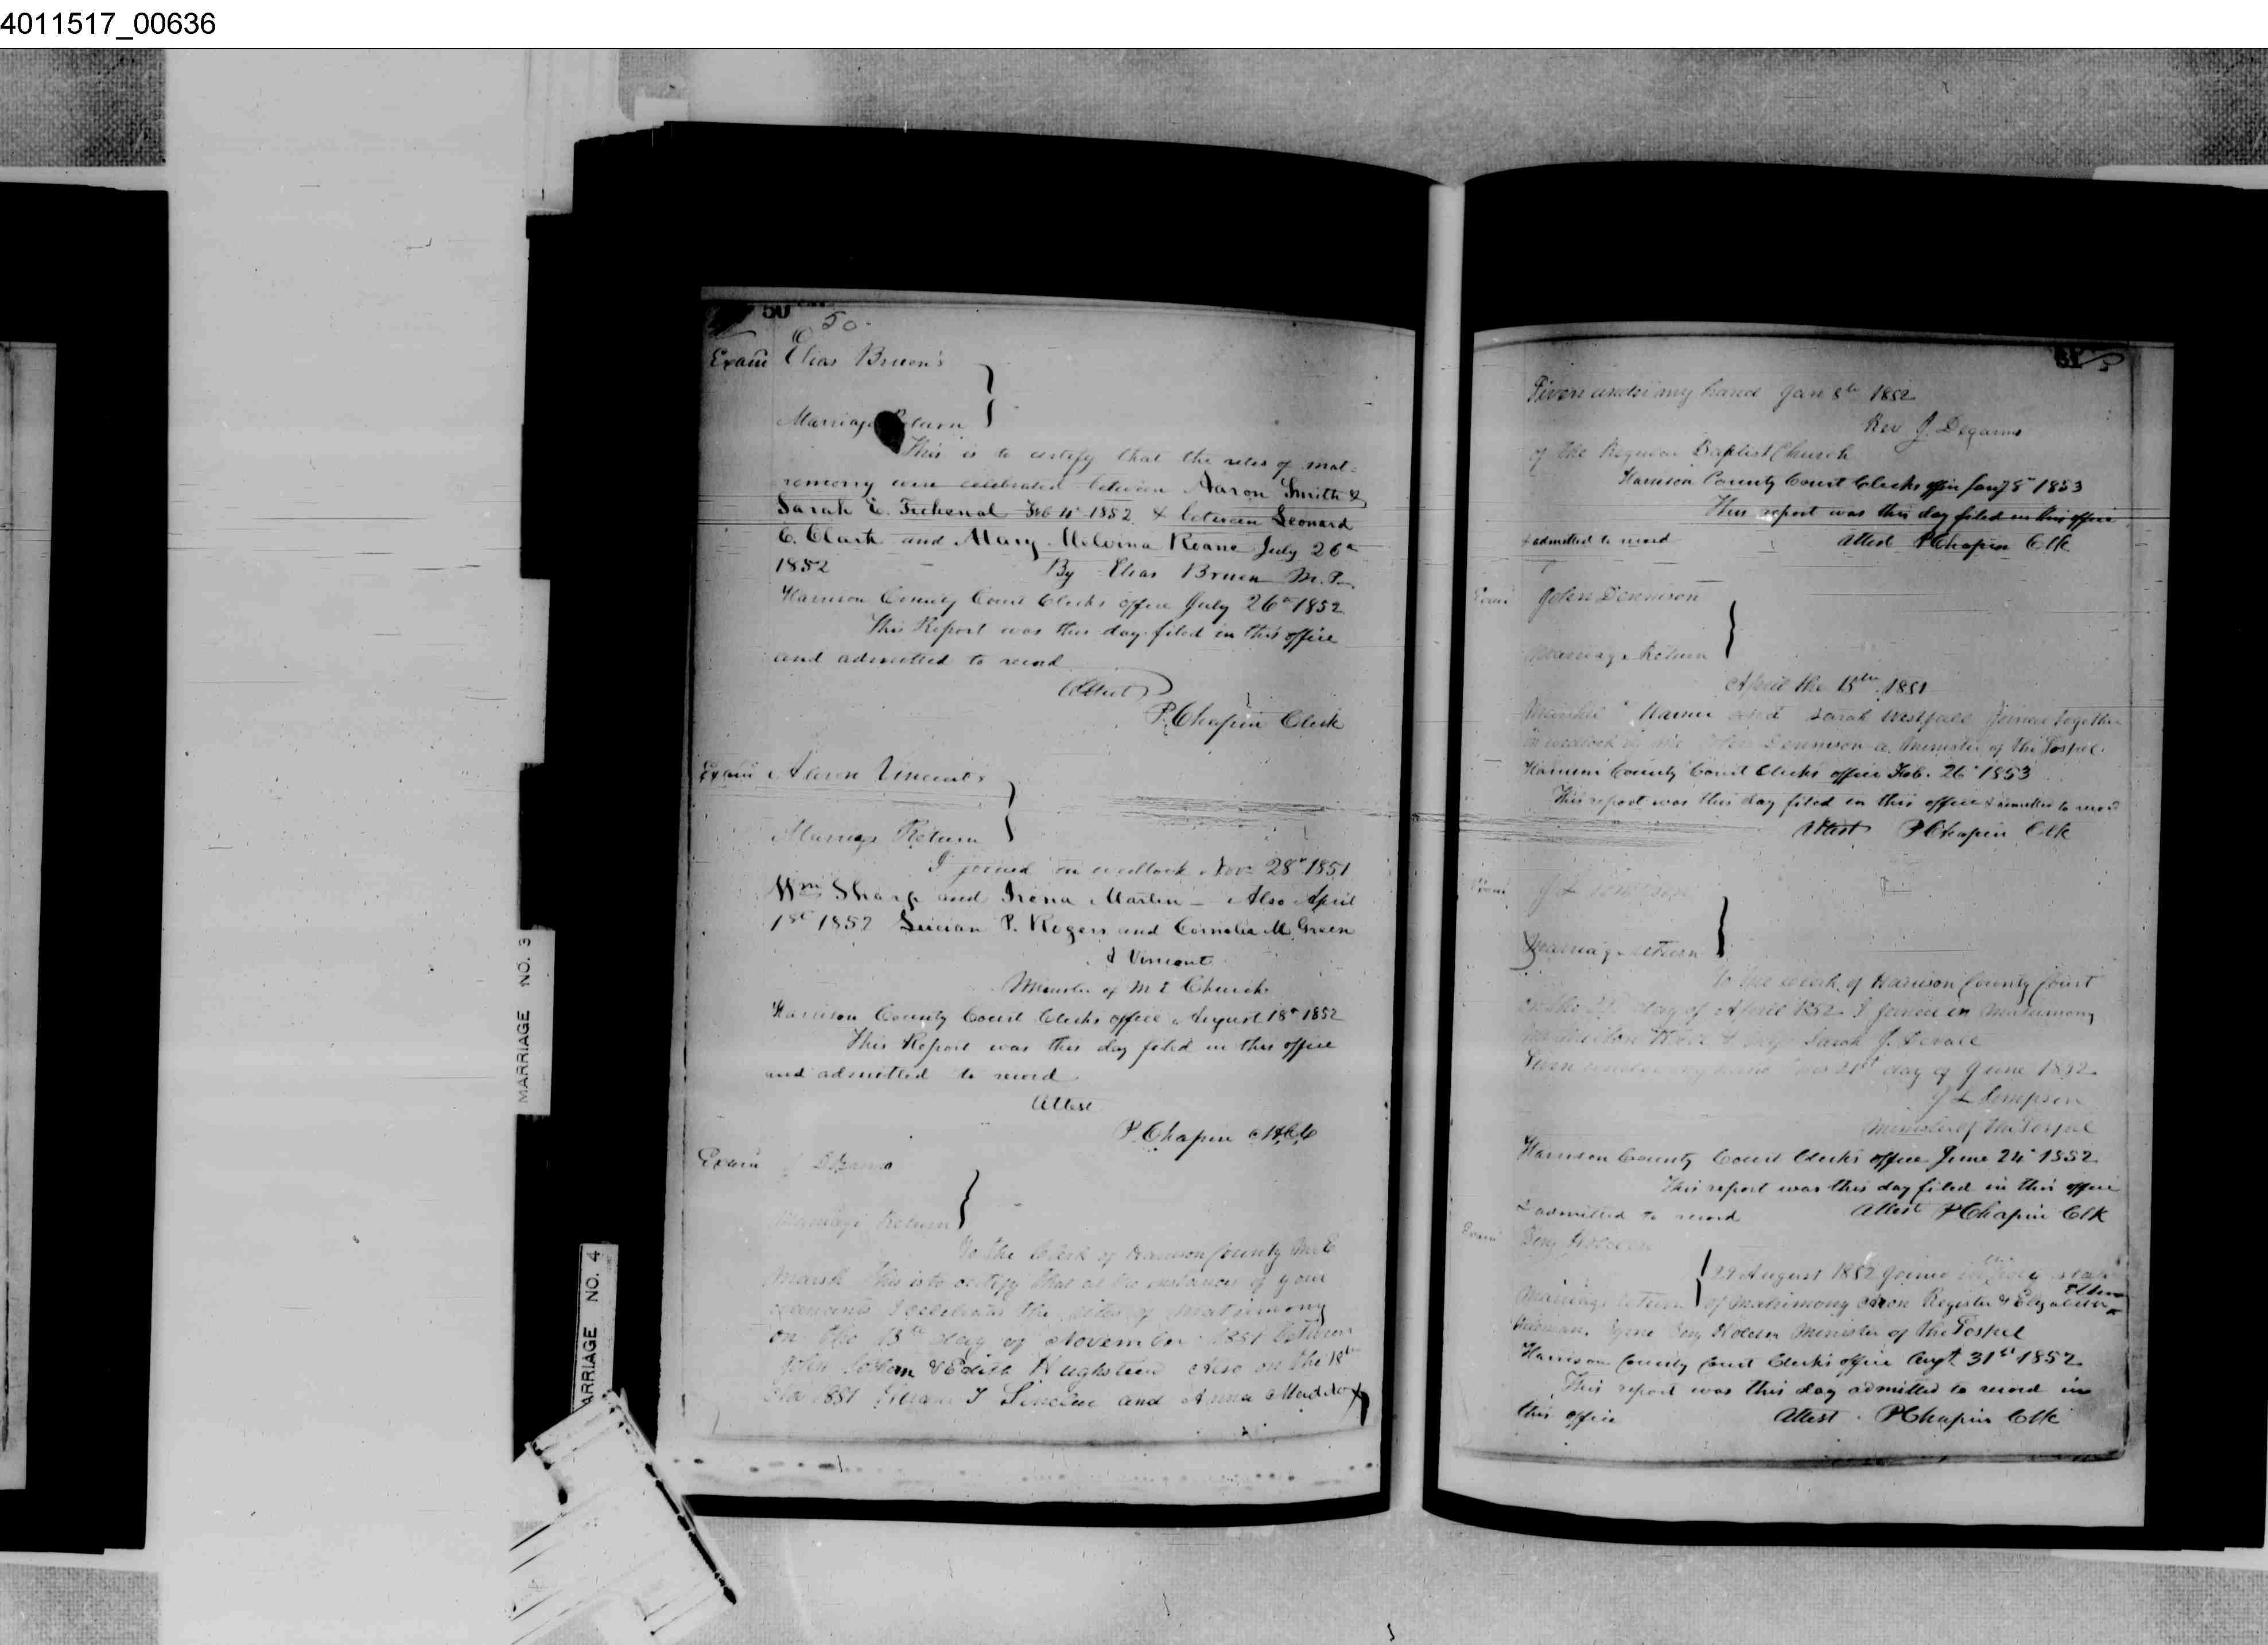 4011517_00636
MARRIAGE NO. 3
ARRIAGE NO. 4
50
50
Exam Elias Bruen's
Marriage Return
This is to certify that the rites of mat=
remony were celebrated between Aaron Smith &
Sarah E. Feb 4th 1852 & between Leonard
C. Clark and Mary Melvina Roane July 26th
1852 By Elias Bruen M. P.
Harrison County Court Clerks office July 26th 1852
This Report was this day filed in this office
and admitted to record
Attest
P. Chapin Clerk
Exam Vincent's
Marriage Return
I joined in wedlock Nov 28th 1851
Wm Sharp and Irena Martin - Also April
1st 1852 Lucian P. Rogers and Cornelia M Green
Vincent
Minister of M E Church
Harrison County Court Clerks office August 18th 1852
This Report was this day filed in this office
and admitted to record
Attest
P. Chapin
Exam
Marriage Return
To the Clerk of Harrison County
This is to certify that at the instance of your
I celebrated the rites of matrimony
on the 13th day of November 1851 between
John & Edith Also on the 18th
1851 and Anna Maddox
51
Given under my hand Jan 8th 1852
Rev J. Degarmo
of the Regular Baptist Church
Harrison County Court Clerks office Jany 8th 1853
This report was this day filed in this office
& admitted to record Attest P Chapin Clk
Exam John Dennison
Marriage Return
April the 15th 1851
and Sarah Westfall joined together
in wedlock by me John Dennison a Minister of the Gospel
Harrison County Court Clerks office Feb. 26th 1853
This report was this day filed in this office & admitted to record
Attest P Chapin Clk
Exam
Marriage Return
To the Clerk of Harrison County Court
on the day of April 1852 I joined in matrimony
Sarah J.
Given under my hand this 21st day of June 1852
Minister of the Gospel
Harrison County Court Clerks office June 24th 1852
This report was this day filed in this office
& admitted to record Attest P Chapin Clk
Exam Benj Holden
29 August 1852 joined in the holy state
Marriage Return of Matrimony Register & Elizabeth
by me Benj Holden Minister of the Gospel
Harrison County Court Clerks office Augt 31st 1852
This report was this day admitted to record in
this office Attest P Chapin Clk